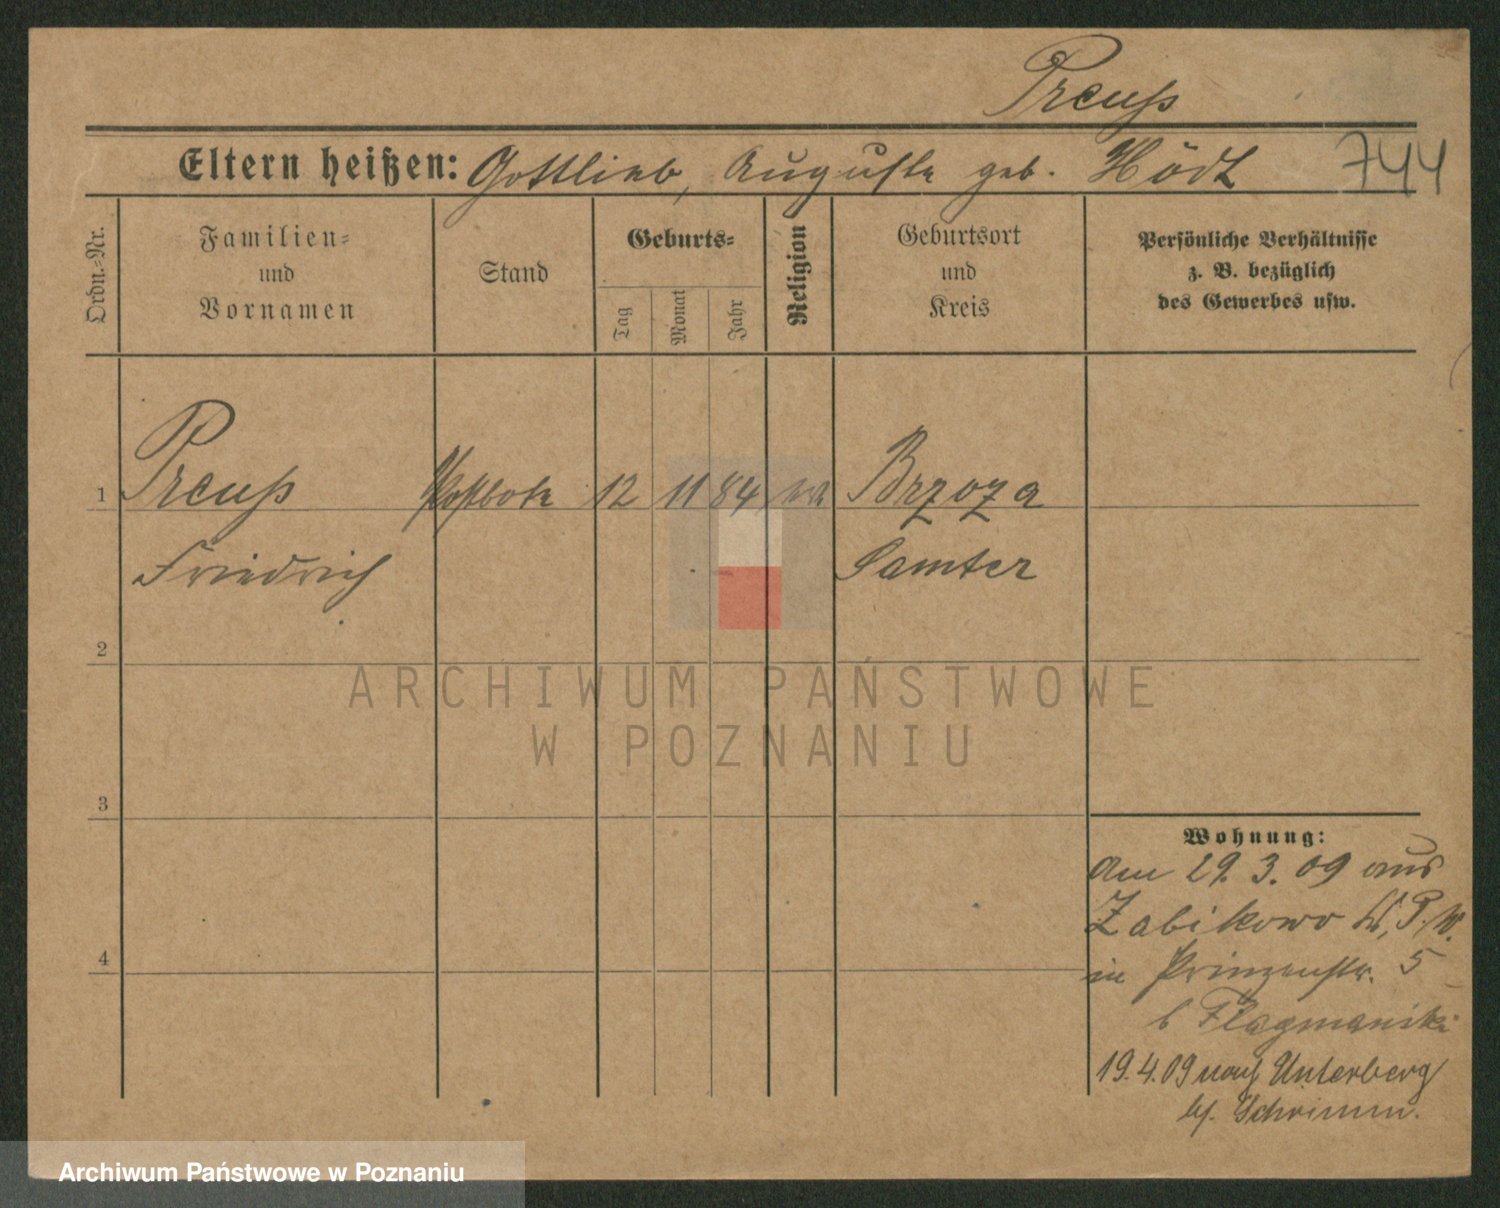 Preuß
Eltern heißen: Gottlieb, Auguste geb. Hödt
744
Ordn.-Nr.
Familien-
und
Vornamen
Stand
Geburts-
Tag
Monat
Jahr
Religion
Geburtsort
und
Kreis
Persönliche Verhältnisse
z. B. bezüglich
des Gewerbes usw.
1 Preuß Postbote 12 11 84 Brzoza
Friedrich Samter
2
ARCHIWUM PAŃSTWOWE
W POZNANIU
3
Wohnung:
Am 29. 3. 09 aus
Zabikowo P. W.
4
in Prinzenstr. 5
b
19.4.09 nach Unterberg
Schrimm.
Archiwum Państwowe w Poznaniu